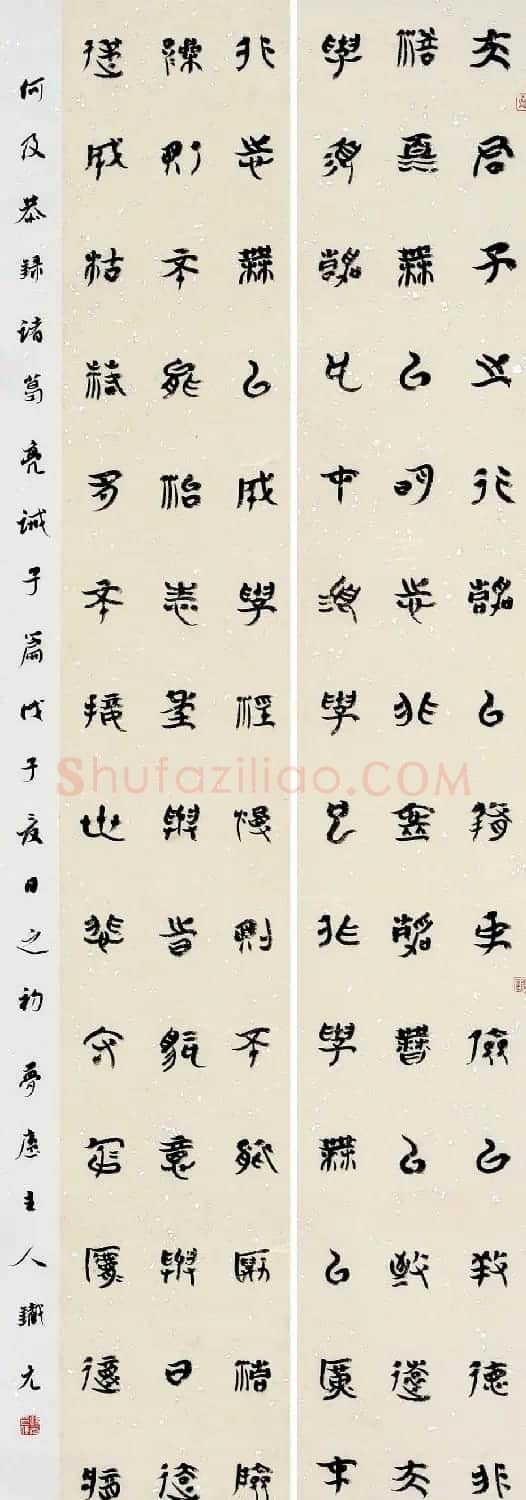 夫君子之行靜以脩身儉以養德非
澹泊無以明志非寧靜無以致遠夫
學須靜也才須學也非學無以廣才
非志無以成學淫慢則不能勵精險
躁則不能治性年與時馳意與日去
遂成枯落多不接世悲守窮廬將復
何及恭錄諸葛亮誡子篇戊子夏日之初夢廬主人元
Shufaziliao.COM